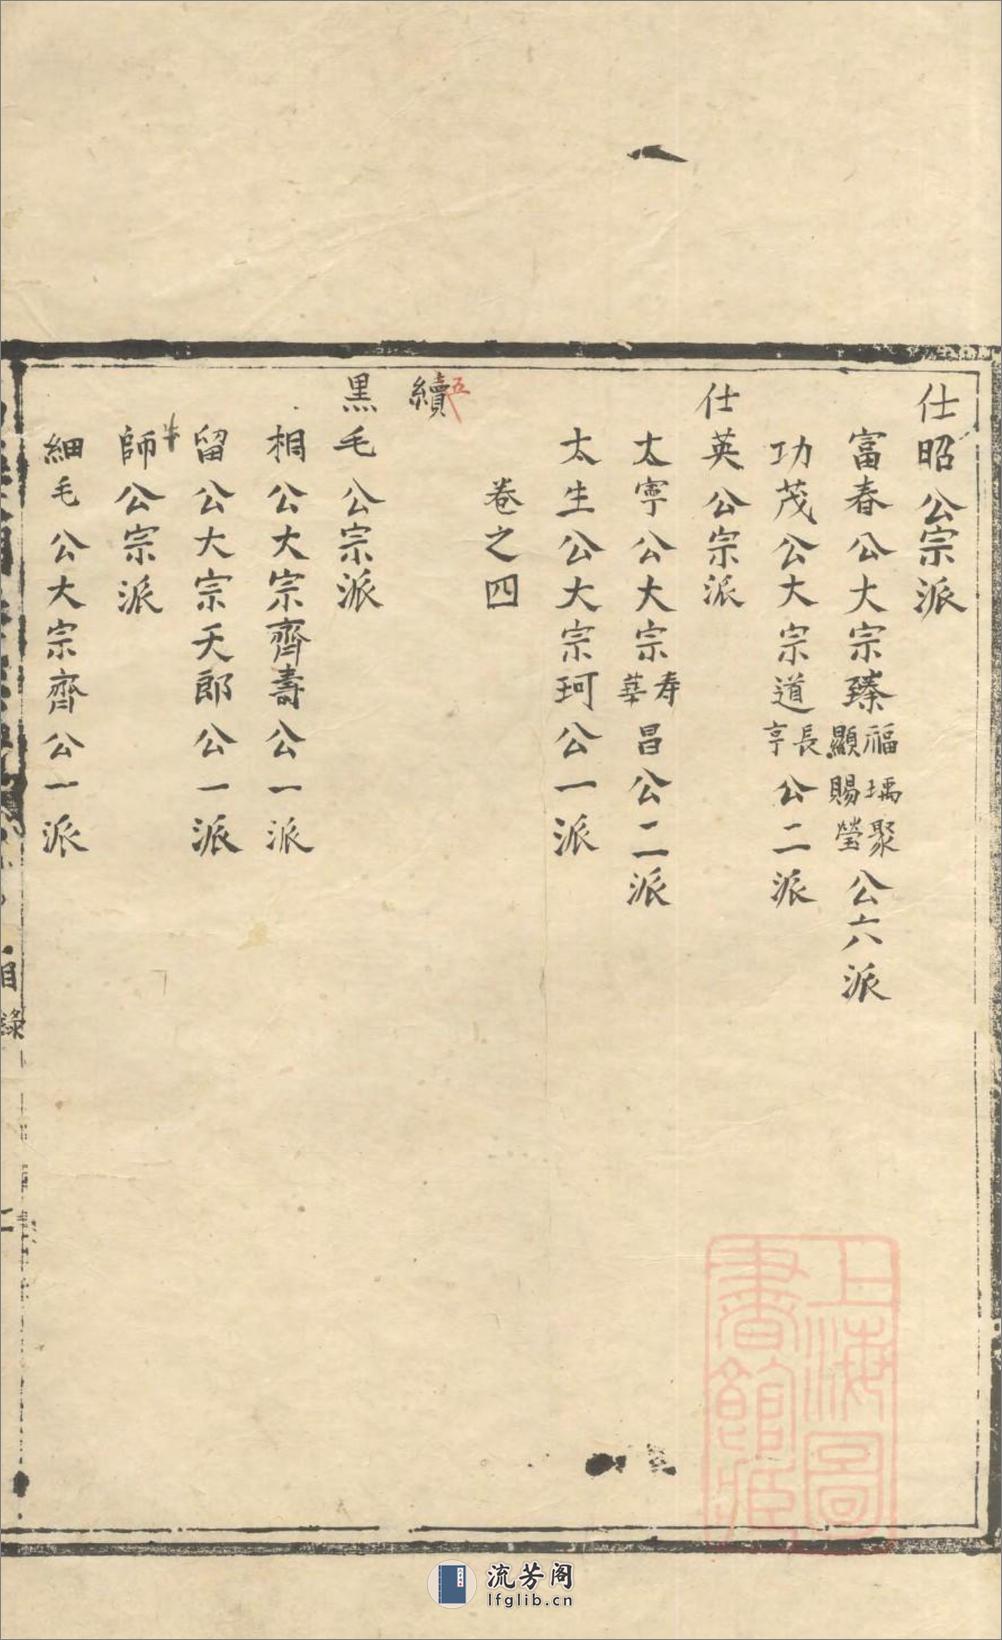 仕昭公宗派
富春公大宗臻福瑀聚顯賜瑩公六派
功茂公大宗道長亨公二派
仕英公宗派
太寧公大宗寿華昌公二派
太生公大宗珂公一派
卷之四
續五
黒毛公宗派
相公大宗齊壽公一派
留公大宗天郎公一派
師公宗派
細毛公大宗齊公一派
目錄
上海圖書館藏
流芳阁
lfglib.cn